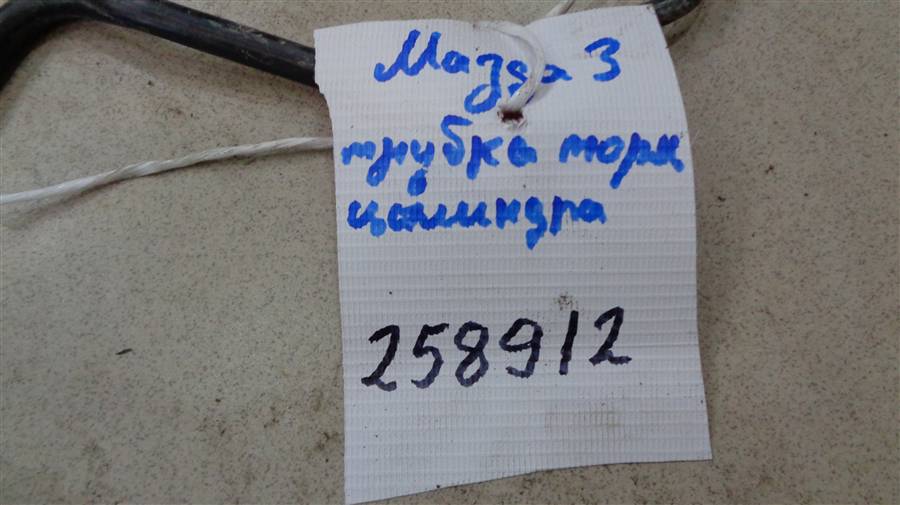 Mazda 3
трубка торм
цилиндра
258912